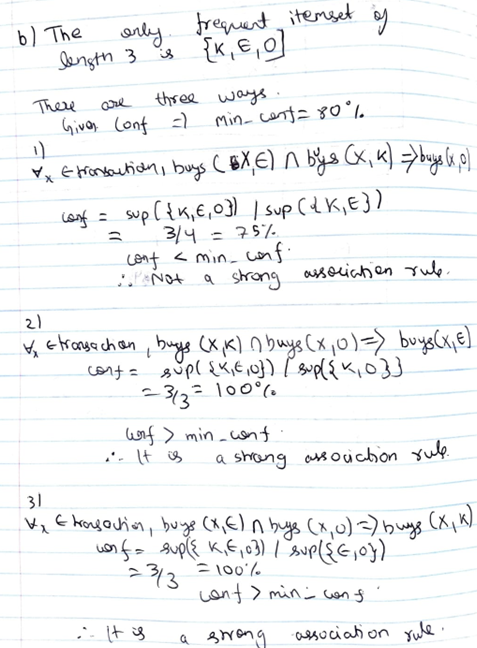 b) The only frequent itemset of
length 3 is {K,E,O]
There are three ways.
Given Conf => min_conf = 80%
1)
∀x ∈ transaction, buys (X,E) ∩ buys (X,K) => buys(x,O)
conf = sup({K,E,O}) / sup({K,E})
= 3/4 = 75%
conf < min_conf.
∴ Not a strong association rule.
2)
∀x ∈ transaction, buys (X,K) ∩ buys (X,O) => buys(X,E)
conf = sup({K,E,O}) / sup({K,O}}
= 3/3 = 100%
conf > min_conf.
∴ It is a strong association rule.
3)
∀x ∈ transaction, buys (X,E) ∩ buys (X,O) => buys (X,K)
conf = sup({K,E,O}) / sup({E,O})
= 3/3 = 100%
conf > min_conf
∴ It is a strong association rule.